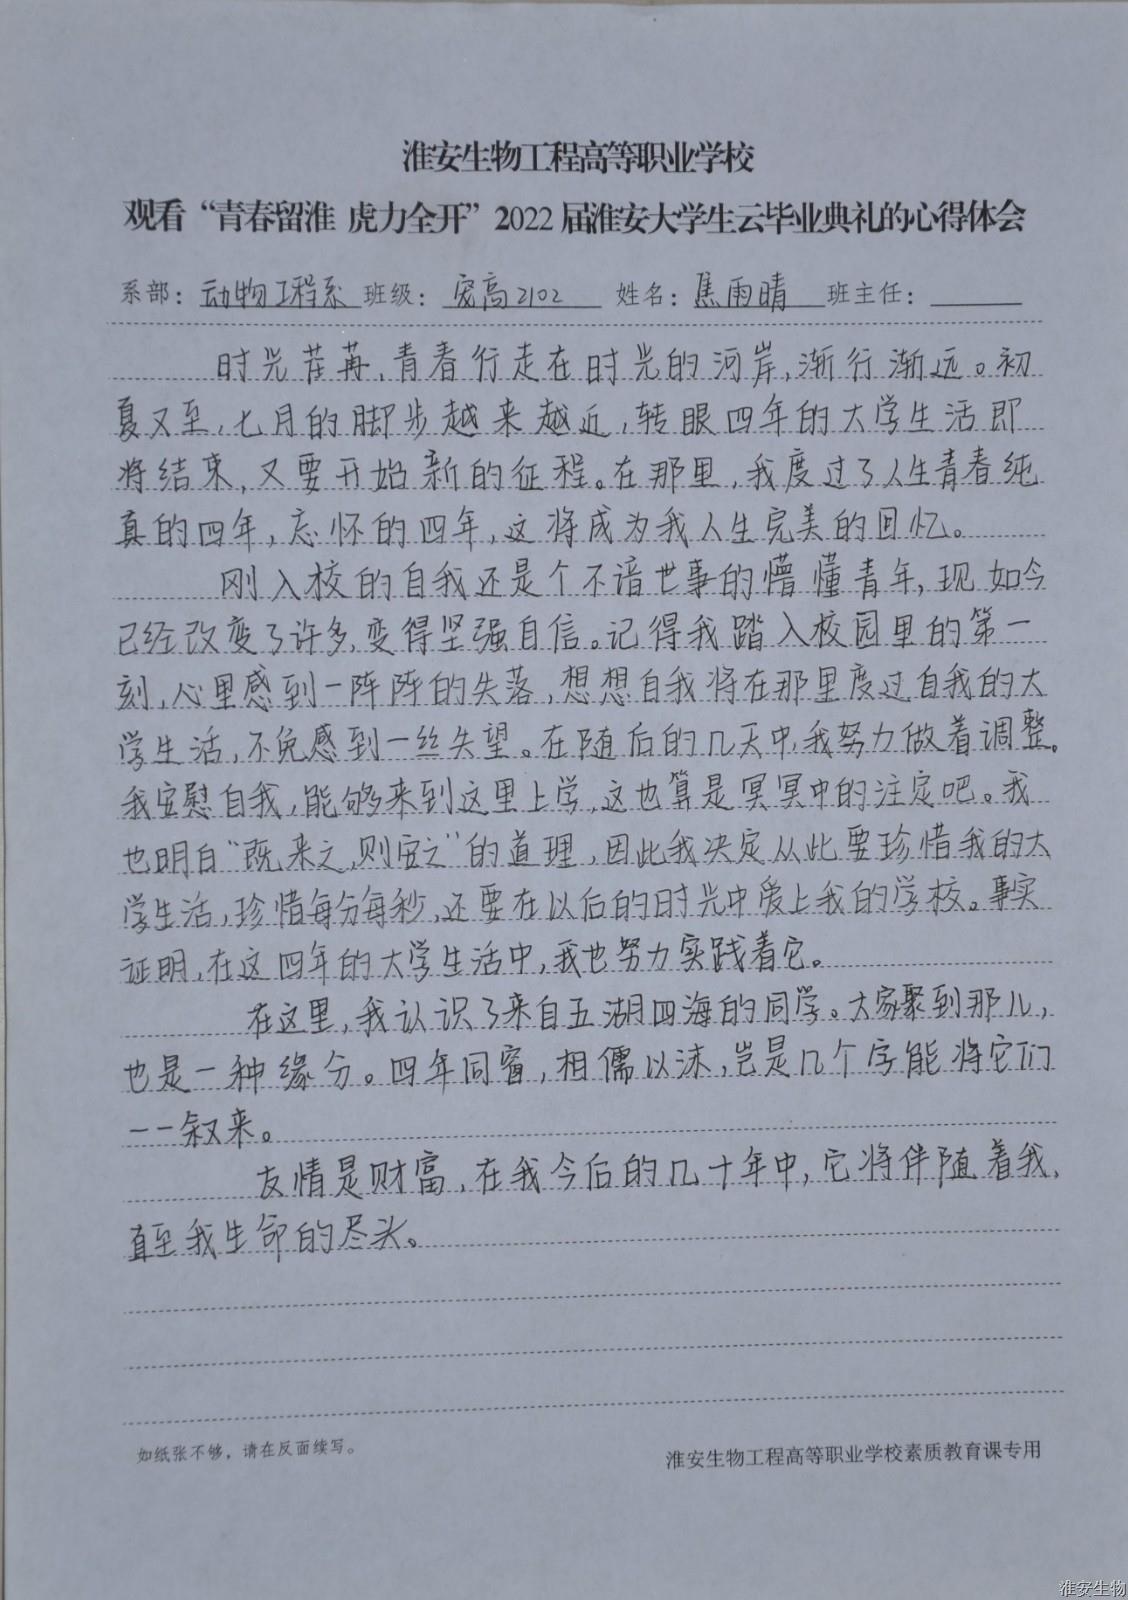 淮安生物工程高等职业学校
观看“青春留淮 虎力全开”2022届淮安大学生云毕业典礼的心得体会
系部：动物工程系 班级：宠高2102 姓名：焦雨晴 班主任：
时光荏苒，青春行走在时光的河岸，渐行渐远。初
夏又至，七月的脚步越来越近，转眼四年的大学生活即
将结束，又要开始新的征程。在那里，我度过了人生青春纯
真的四年，忘怀的四年，这将成为我人生完美的回忆。
刚入校的自我还是个不谙世事的懵懂青年，现如今
已经改变了许多，变得坚强自信。记得我踏入校园里的第一
刻，心里感到一阵阵的失落，想想自我将在那里度过自我的大
学生活，不免感到一丝失望。在随后的几天中，我努力做着调整。
我安慰自我，能够来到这里上学，这也算是冥冥中的注定吧。我
也明白“既来之，则安之”的道理，因此我决定从此要珍惜我的大
学生活，珍惜每分每秒，还要在以后的时光中爱上我的学校。事实
证明，在这四年的大学生活中，我也努力实践着它。
在这里，我认识了来自五湖四海的同学。大家聚到那儿，
也是一种缘分。四年同窗，相儒以沫，岂是几个字能将它们
一一叙来。
友情是财富，在我今后的几十年中，它将伴随着我，
直至我生命的尽头。
如纸张不够，请在反面续写。
淮安生物工程高等职业学校素质教育课专用
淮安生物